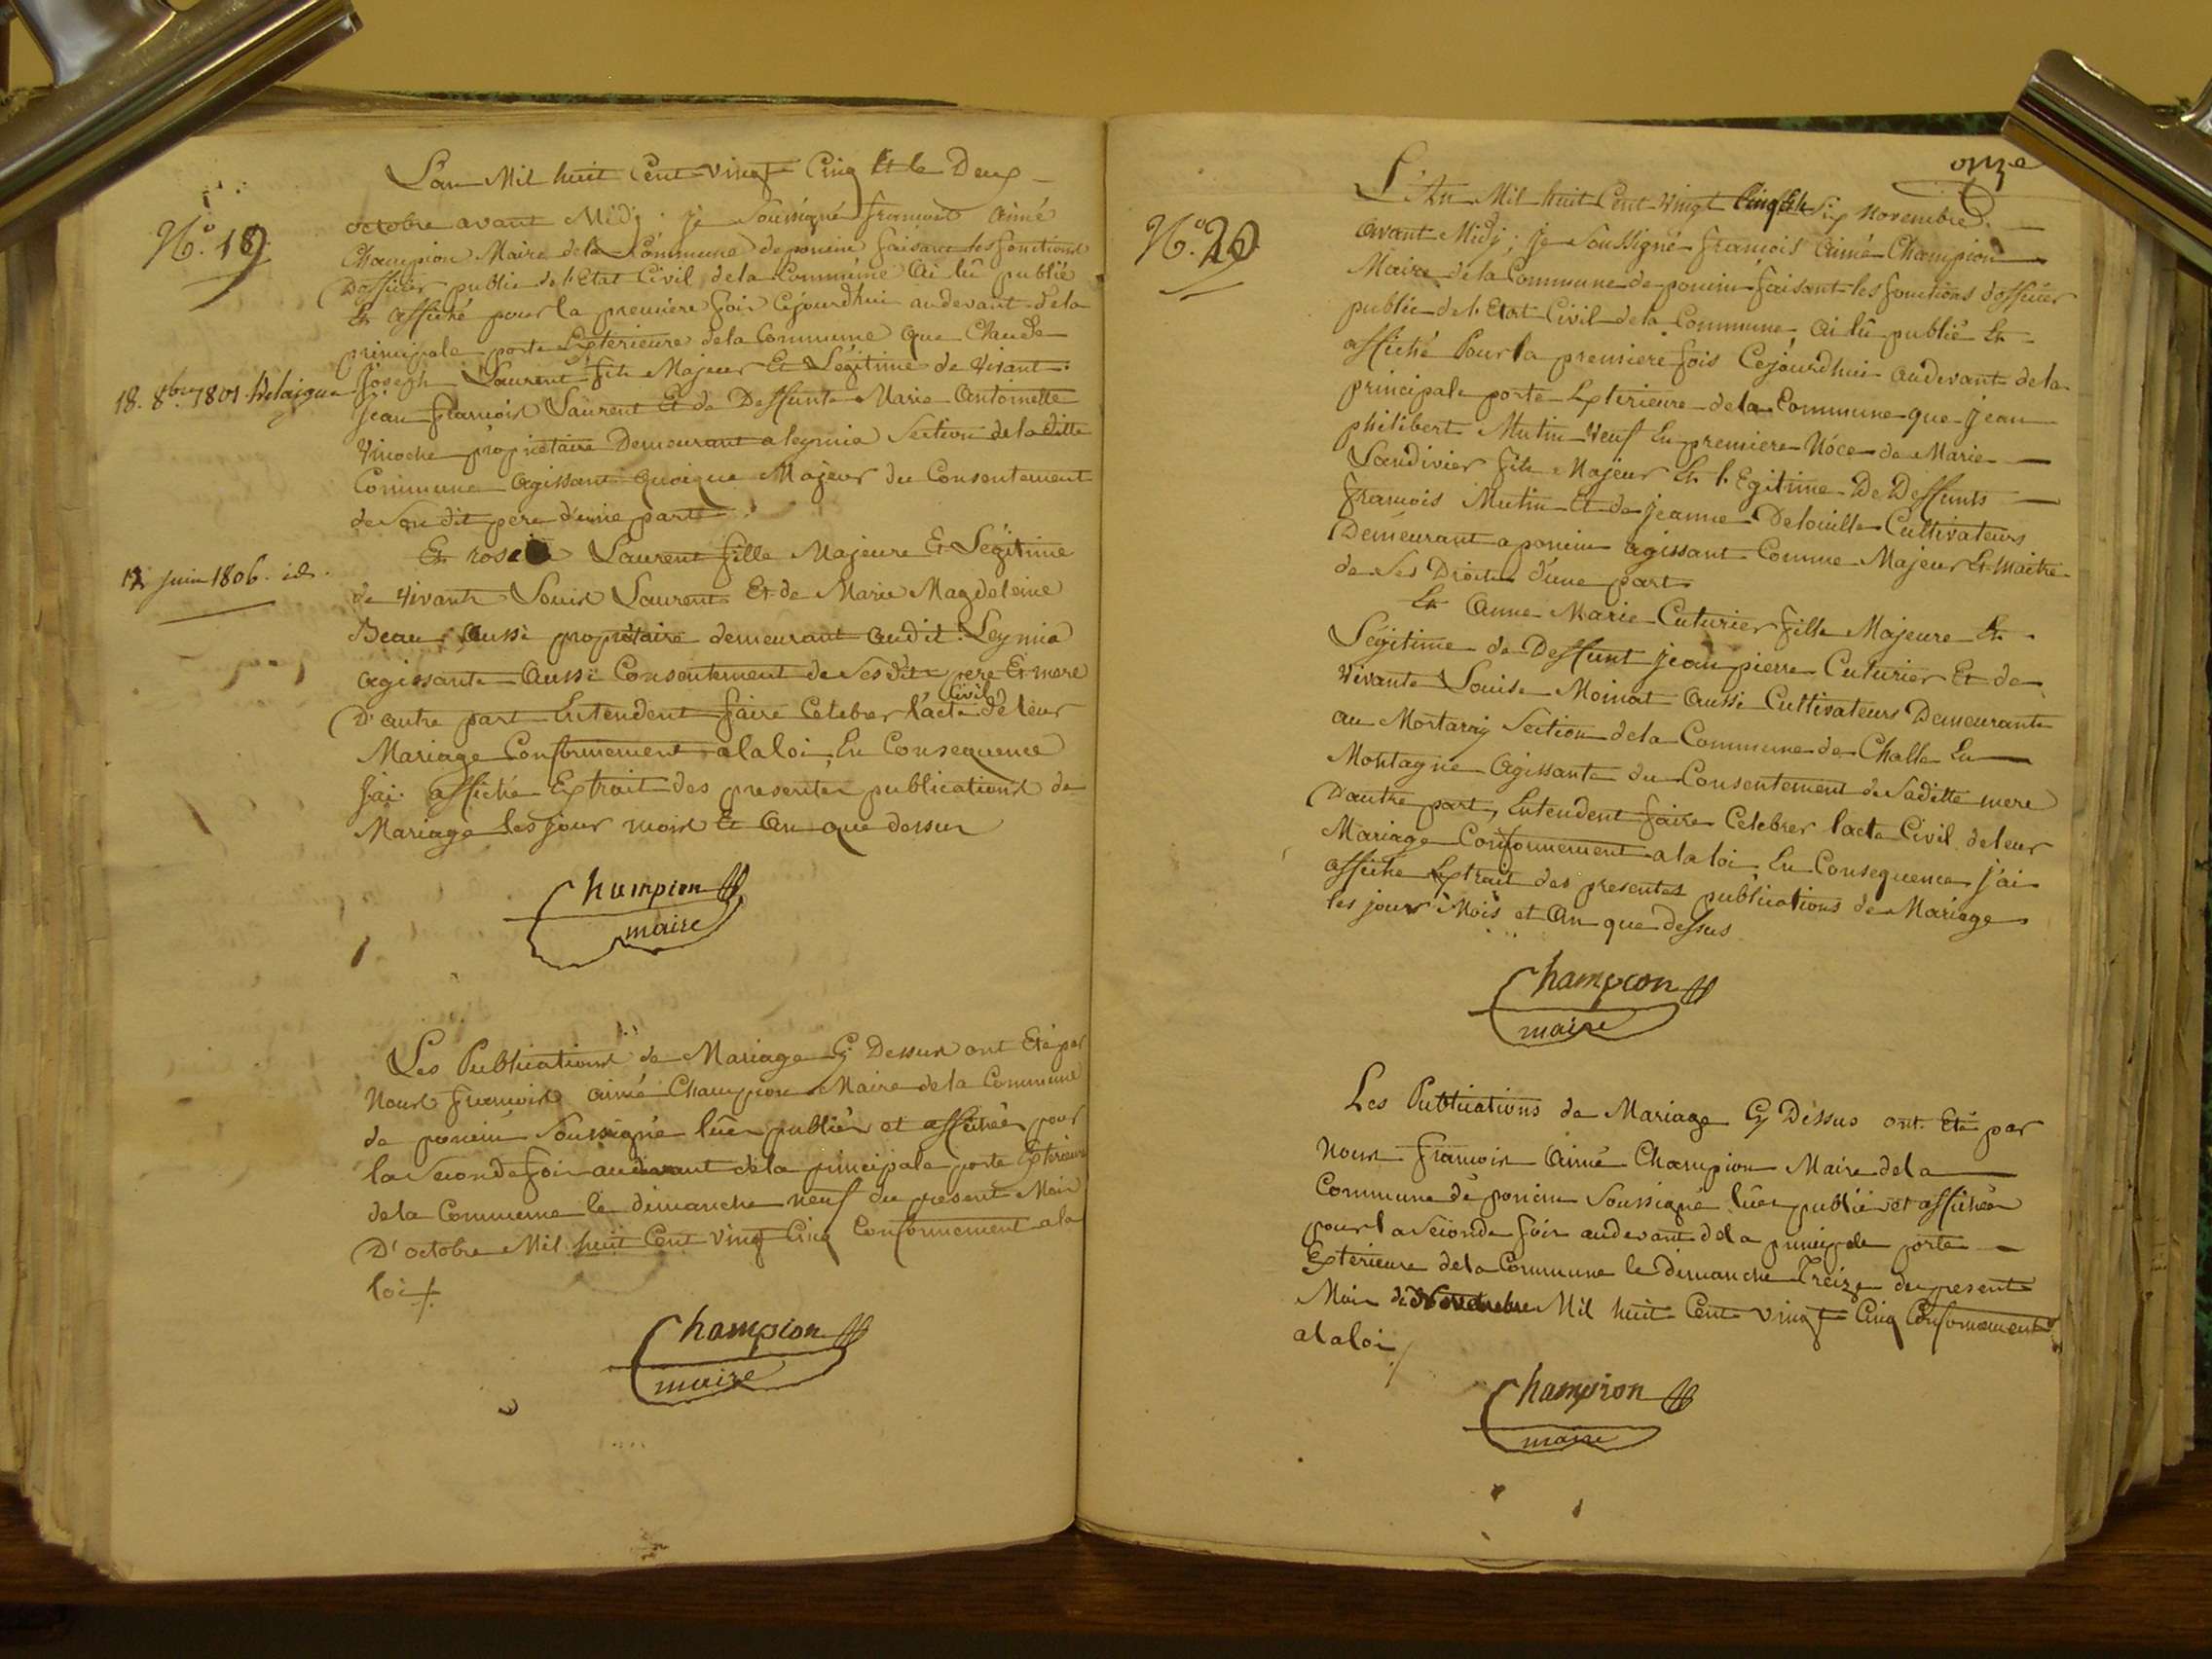 N.º 19
L'an Mil huit Cent vingt Cinq Et le Deux
octobre avant Midj. je Soussigné françois Aimé
Champion Maire de la Commune de poncin faisant les fonctions
D'officier public de l'Etat Civil de la Commune Ai lû publié
Et affiché pour la premiere fois Cejourdhui audevant de la
principale porte Exterieure de la Commune que Claude
18. 8bre 1801.
joseph Laurent fils Majeur Et Légitime de vivant
jean françois Laurent Et de Deffunte Marie Antoinette
Vinoche propriétaire Demeurant a leymia Section de la ditte
Commune agissant quoique Majeur du Consentement
de Son dit pere d'une part
Et Laurent fille Majeure Et Légitime
12 juin 1806. id.
de vivants Louis Laurent Et de Marie Magdeleine
Beau aussi propriétaire demeurant audit Leymia
agissante Aussi Consentement de Ses dits pere Et mere
D'autre part Entendent faire Celebrer l'acte Civil de leur
Mariage Conformement a la loi, En Consequence
j'ai affiché Extrait des presentes publications de
Mariage les jour mois Et An que dessus
Champion
maire
Les Publications de Mariage Cy Dessus ont Eté par
Nous françois aimé Champion Maire de la Commune
de poncin Soussigné lües publiés et affichées pour
la Seconde fois audevant de la principale porte Exterieure
de la Commune le dimanche neuf du present Mois
D'octobre Mil huit Cent vingt Cinq Conformement a la
loi
Champion
maire
onze
N.º 20
L'An Mil huit Cent vingt Cinq Et le Six Novembre
avant Midj; je Soussigné françois Aimé Champion
Maire de la Commune de poncin faisant les fonctions d'officier
public de l'Etat Civil de la Commune, ai lû publié Et
affiché Pour la premiere fois Cejourdhui audevant de la
principale porte Exterieure de la Commune que jean
philibert Mutin Veuf En premiere Nôce de Marie
Landivier fils Majeur Et l'Egitime De Deffunts
françois Mutin Et de jeanne Delouille Cultivateurs
Demeurant a poncin agissant Comme Majeur Et Maitre
de Ses Droits d'une part
Et Anne Marie Cuturier fille Majeure Et
Légitime de Deffunt jean pierre Cuturier Et de
vivante Louise Moinat Aussi Cultivateurs Demeurante
au Mortarey Section de la Commune de Challe En
Montagne Agissante du Consentement de Saditte mere
D'autre part, Entendent faire Celebrer l'acte Civil de leur
Mariage Conformement a la loi En Consequence j'ai
affiché Extrait des presentes publications de Mariage
les jour Mois et An que dessus
Champion
maire
Les Publications de Mariage Cy Dessus ont Eté par
Nous françois Aimé Champion Maire de la
Commune de poncin Soussigné lües publiés et affichées
pour la Seconde fois audevant de la principale porte
Exterieure de la Commune le dimanche Treize du present
Mois de Novembre Mil huit Cent vingt Cinq Conformement
a la loi
Champion
maire